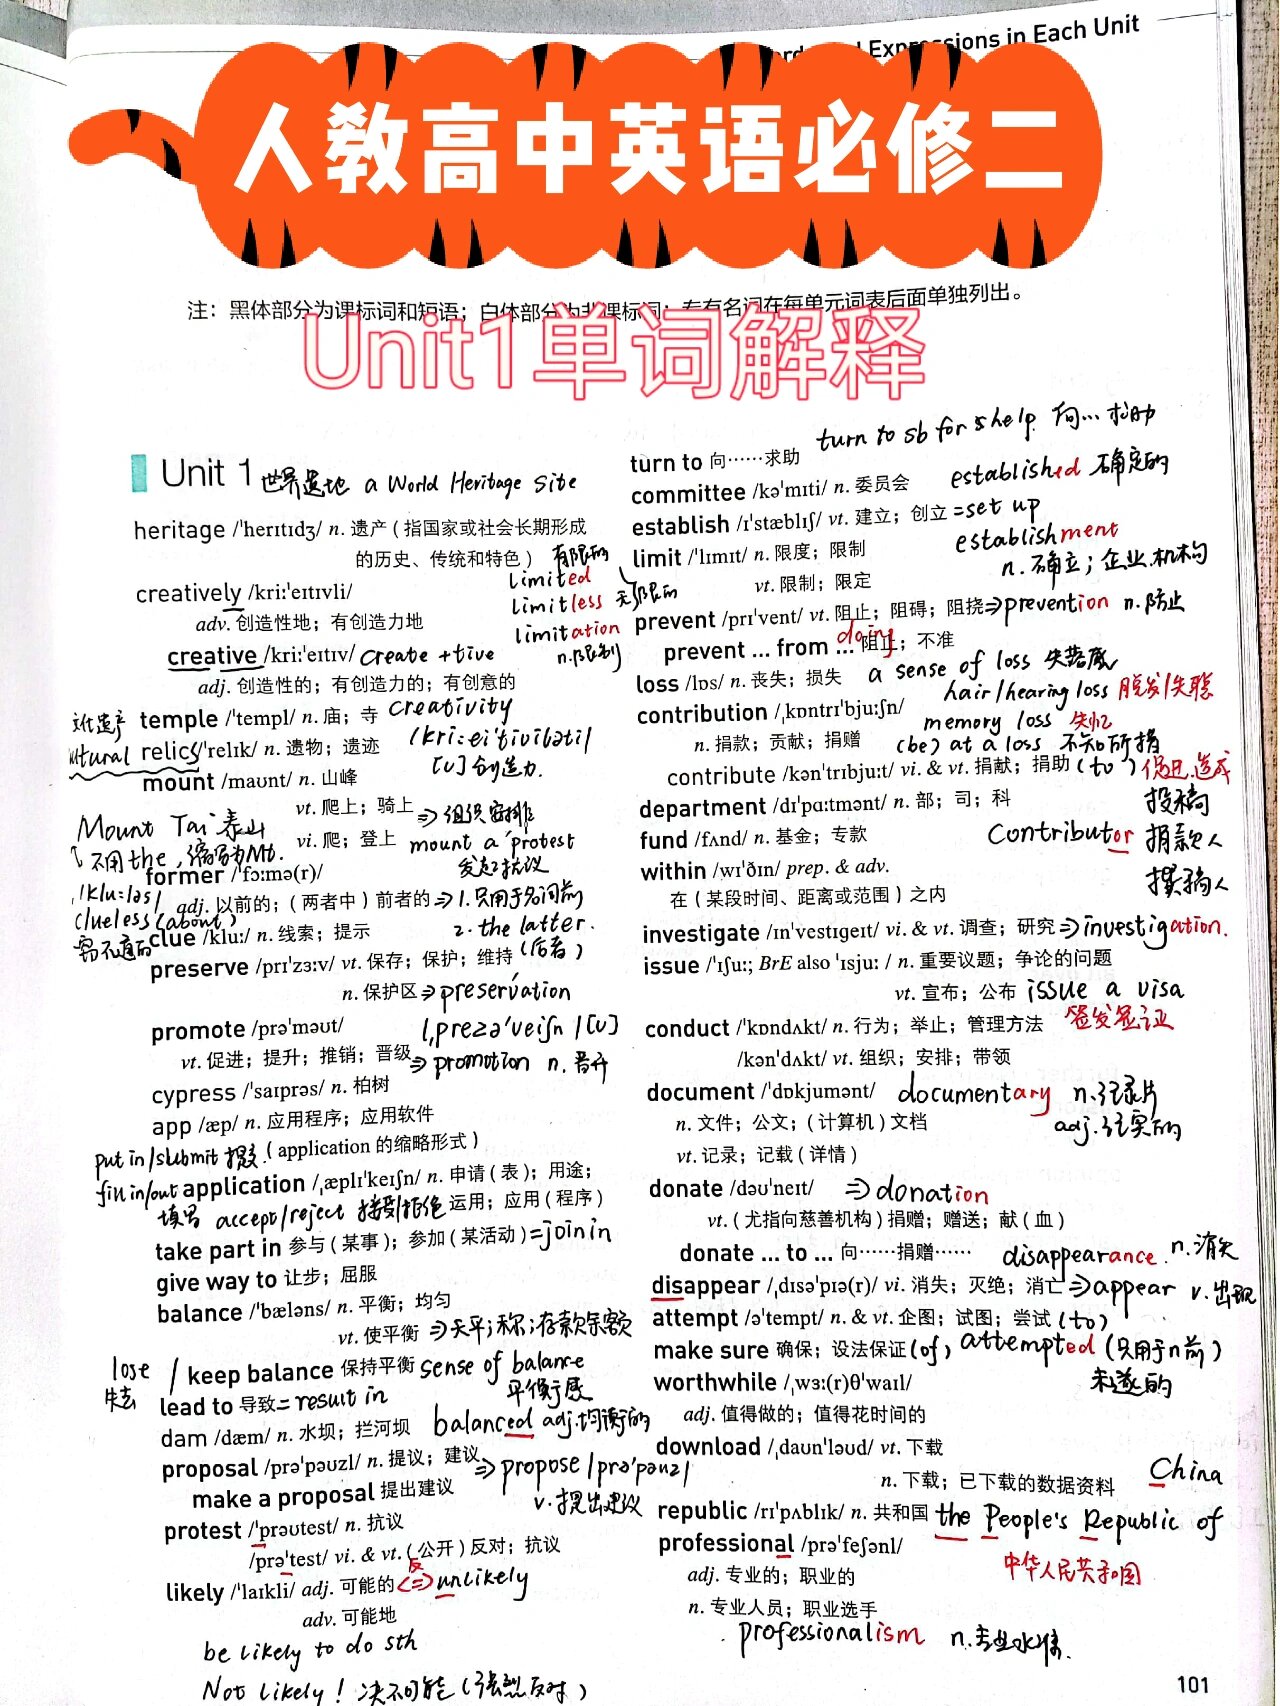 Expressions in Each Unit
人教高中英语必修二
注：黑体部分为课标词和短语；白体部分为非课标词；专有名词在每单元词表后面单独列出。
Unit1单词解释
Unit 1 世界遗地 a World Heritage Site
heritage /ˈherɪtɪdʒ/ n. 遗产（指国家或社会长期形成
的历史、传统和特色）
有限的
limited
limitless 无限的
limitation
n.限制
creatively /kriːˈeɪtɪvli/
adv. 创造性地；有创造力地
creative /kriːˈeɪtɪv/ create + tive
adj. 创造性的；有创造力的；有创意的
temple /ˈtempl/ n. 庙；寺 creativity
文化遗产
cultural relics /ˈrelɪk/ n. 遗物；遗迹
[U] 创造力
mount /maʊnt/ n. 山峰
vt. 爬上；骑上 ⇒组织安排
vi. 爬；登上 mount a protest
发起抗议
Mount Tai 泰山
不用the，缩写为Mt.
former /ˈfɔːmə(r)/
adj. 以前的；（两者中）前者的⇒1.只用于名词前
2. the latter.
（后者）
/kluːləs/
clueless (about)
clue /kluː/ n. 线索；提示
preserve /prɪˈzɜːv/ vt. 保存；保护；维持
n. 保护区⇒preservation
/ˌprezəˈveiʃn/ [U]
promote /prəˈməʊt/
vt. 促进；提升；推销；晋级⇒promotion n. 晋升
cypress /ˈsaɪprəs/ n. 柏树
app /æp/ n. 应用程序；应用软件
（application 的缩略形式）
put in/submit 提交
fill in/out
填写
application /ˌæplɪˈkeɪʃn/ n. 申请（表）；用途；
运用；应用（程序）
accept/reject 接受/拒绝
take part in 参与（某事）；参加（某活动）=join in
give way to 让步；屈服
balance /ˈbæləns/ n. 平衡；均匀
vt. 使平衡 ⇒天平；称；存款余额
lose
失去
/ keep balance 保持平衡 sense of balance
平衡感
lead to 导致=result in
dam /dæm/ n. 水坝；拦河坝 balanced adj.均衡的
proposal /prəˈpəʊzl/ n. 提议；建议⇒propose /prəˈpəuz/
v. 提出建议
make a proposal 提出建议
protest /ˈprəʊtest/ n. 抗议
/prəˈtest/ vi. & vt.（公开）反对；抗议
反
likely /ˈlaɪkli/ adj. 可能的⇔unlikely
adv. 可能地
be likely to do sth
Not likely! 决不可能（强烈反对）
turn to 向……求助 turn to sb for s help 向…求助
committee /kəˈmɪti/ n. 委员会
established 确定的
establish /ɪˈstæblɪʃ/ vt. 建立；创立=set up
establishment
n. 确立；企业机构
limit /ˈlɪmɪt/ n. 限度；限制
vt. 限制；限定
prevent /prɪˈvent/ vt. 阻止；阻碍；阻挠⇒prevention n. 防止
doing
prevent ... from ... 阻止；不准
loss /lɒs/ n. 丧失；损失 a sense of loss 失落感
hair/hearing loss 脱发/失聪
memory loss 失忆
(be) at a loss 不知所措
contribution /ˌkɒntrɪˈbjuːʃn/
n. 捐款；贡献；捐赠
contribute /kənˈtrɪbjuːt/ vi. & vt. 捐献；捐助（to）促进.造成
投稿
department /dɪˈpɑːtmənt/ n. 部；司；科
fund /fʌnd/ n. 基金；专款
contributor 捐款人
撰稿人
within /wɪˈðɪn/ prep. & adv.
在（某段时间、距离或范围）之内
investigate /ɪnˈvestɪɡeɪt/ vi. & vt. 调查；研究⇒investigation.
issue /ˈɪʃuː; BrE also ˈɪsjuː/ n. 重要议题；争论的问题
vt. 宣布；公布 issue a visa
签发签证
conduct /ˈkɒndʌkt/ n. 行为；举止；管理方法
/kənˈdʌkt/ vt. 组织；安排；带领
document /ˈdɒkjumənt/ documentary n.纪录片
adj.纪实的
n. 文件；公文；（计算机）文档
vt. 记录；记载（详情）
donate /dəʊˈneɪt/ ⇒donation
vt.（尤指向慈善机构）捐赠；赠送；献（血）
donate ... to ... 向……捐赠……
disappearance n.消失
disappear /ˌdɪsəˈpɪə(r)/ vi. 消失；灭绝；消亡⇒appear v. 出现
attempt /əˈtempt/ n. & vt. 企图；试图；尝试（to）
make sure 确保；设法保证(of) attempted（只用于n前）
未遂的
worthwhile /ˌwɜː(r)θˈwaɪl/
adj. 值得做的；值得花时间的
download /ˌdaʊnˈləʊd/ vt. 下载
n. 下载；已下载的数据资料
republic /rɪˈpʌblɪk/ n. 共和国 the People's Republic of China
中华人民共和国
professional /prəˈfeʃənl/
adj. 专业的；职业的
n. 专业人员；职业选手
professionalism n.专业水准.
101